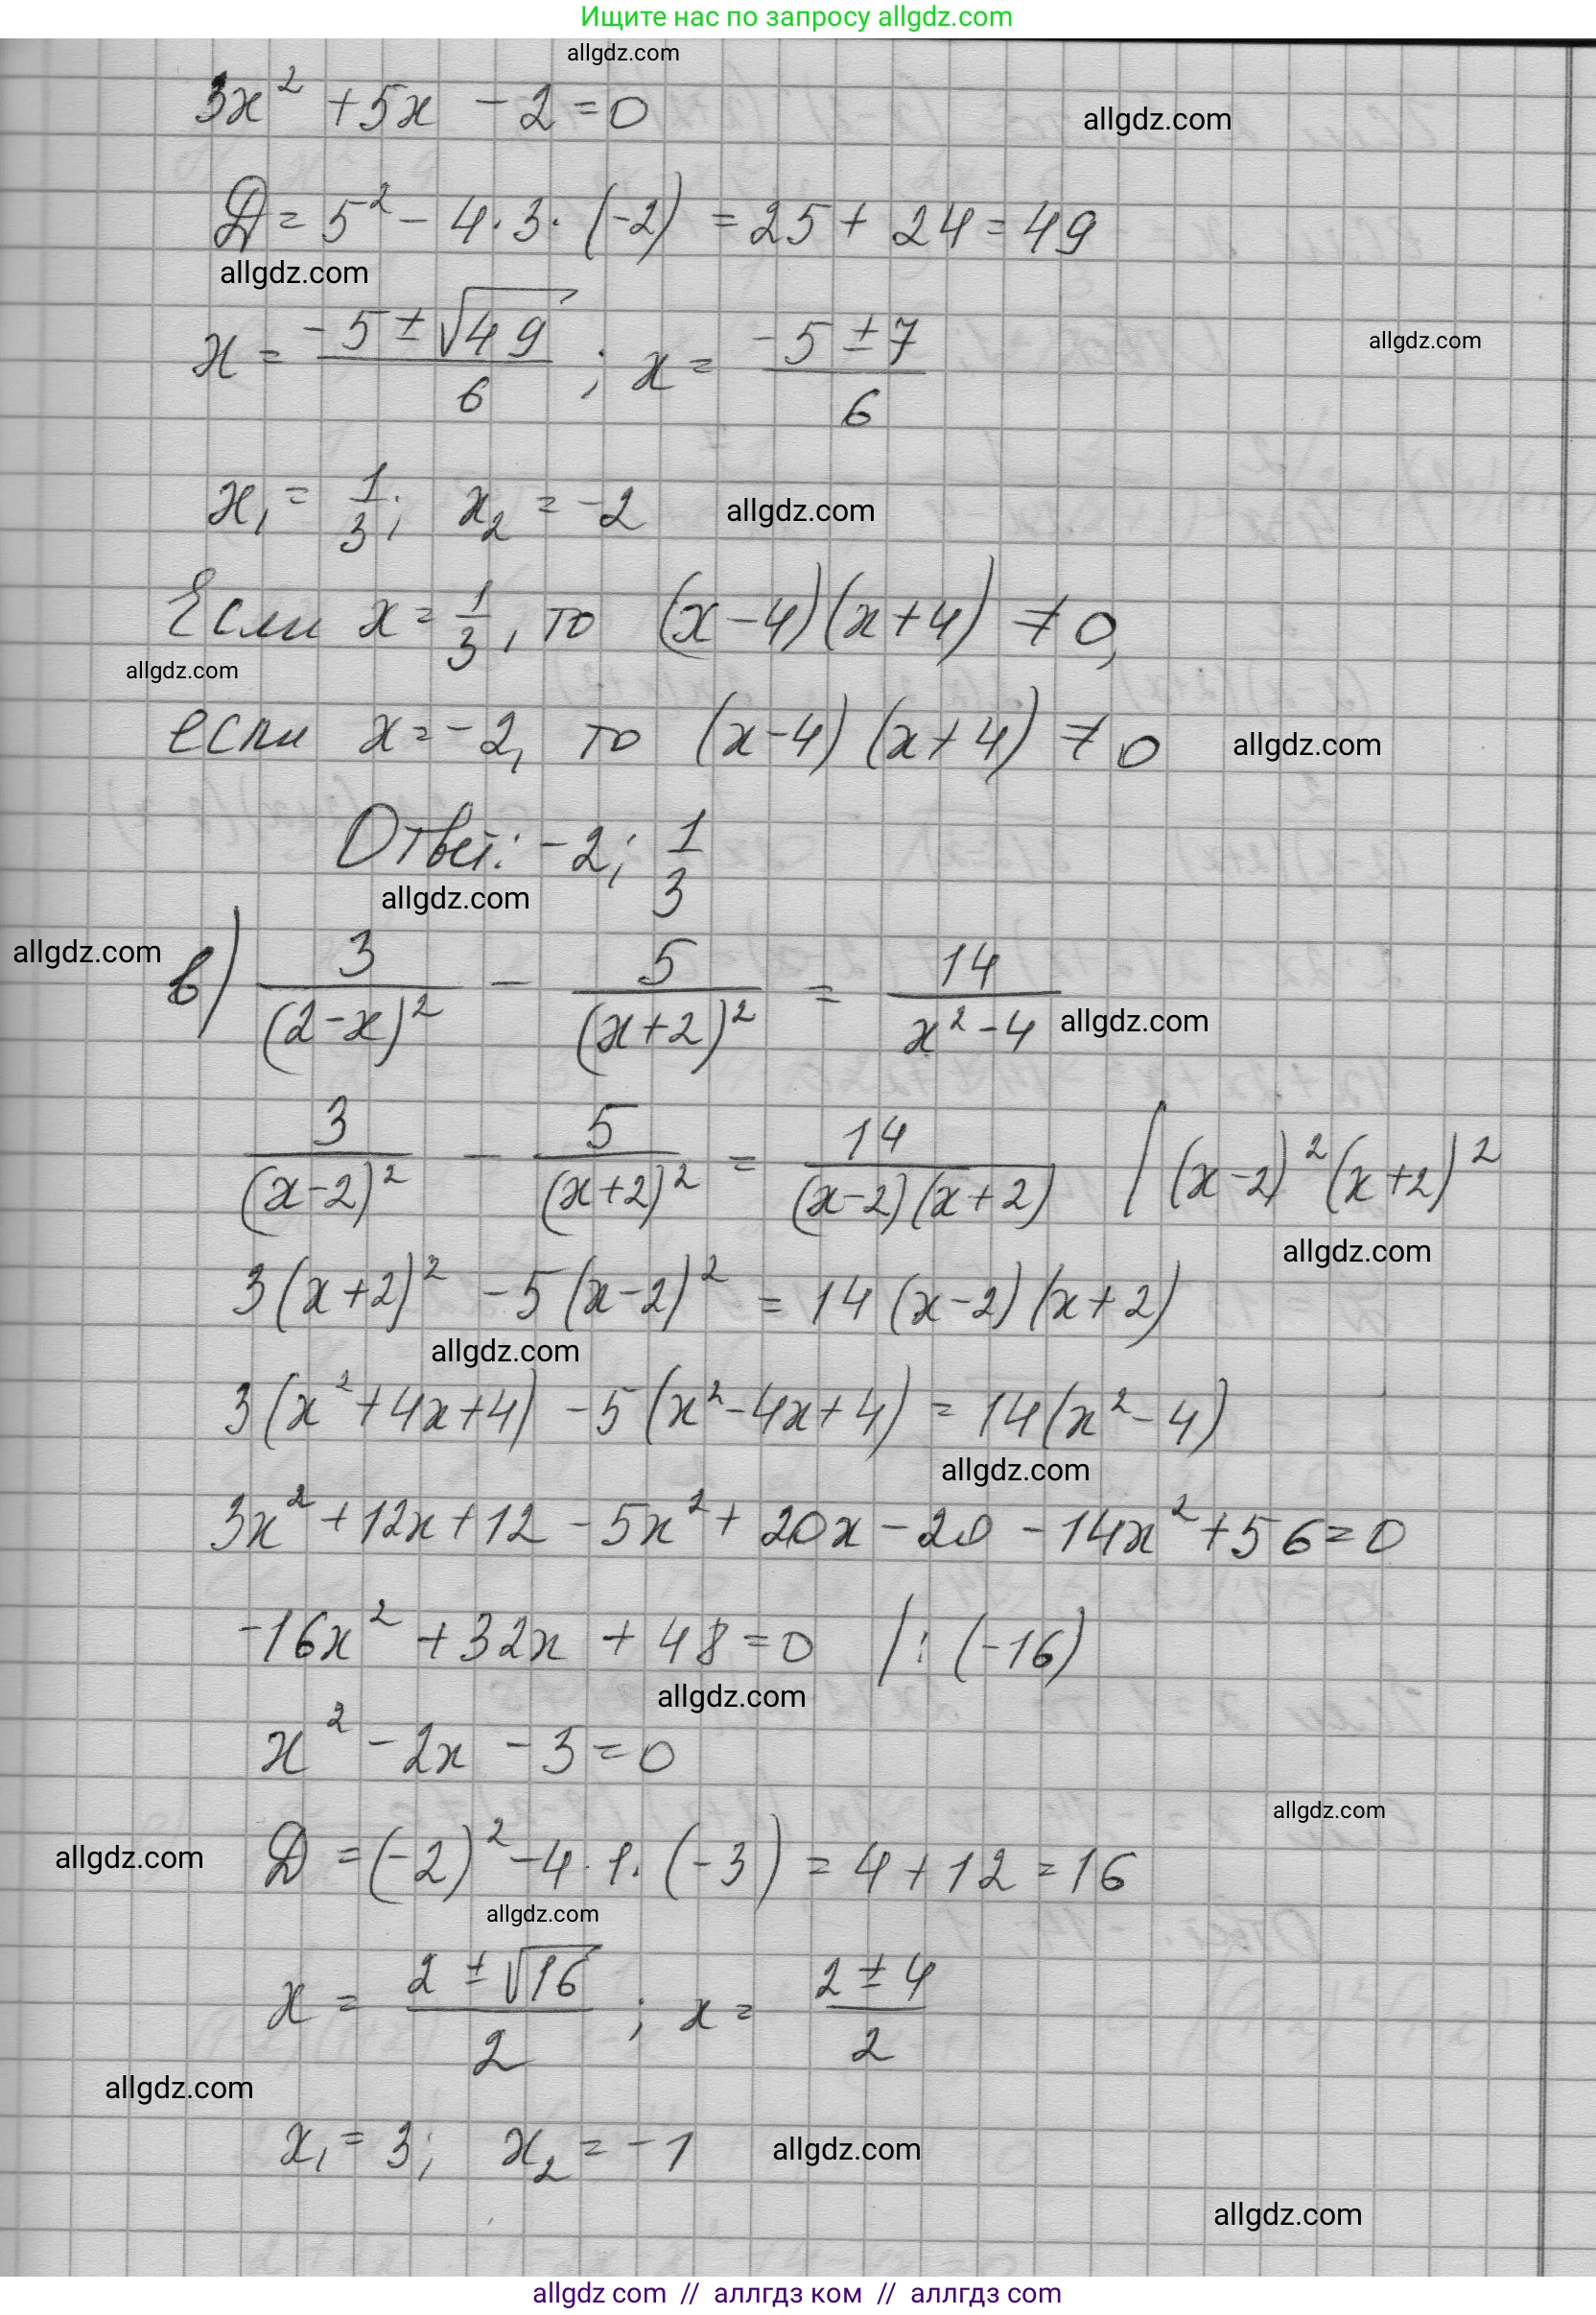 Ищите нас по запросу allgdz.com
allgdz.com
3x² + 5x - 2 = 0
allgdz.com
Д = 5² - 4·3·(-2) = 25 + 24 = 49
allgdz.com
x = (-5 ± √49)/6 ; x = (-5 ± 7)/6
allgdz.com
x₁ = 1/3; x₂ = -2
allgdz.com
Если x = 1/3, то (x-4)(x+4) ≠ 0,
allgdz.com
если x = -2, то (x-4)(x+4) ≠ 0
allgdz.com
Ответ: -2; 1/3
allgdz.com
allgdz.com
в) 3/(2-x)² - 5/(x+2)² = 14/(x²-4)
allgdz.com
3/(x-2)² - 5/(x+2)² = 14/((x-2)(x+2)) | (x-2)²(x+2)²
allgdz.com
3(x+2)² - 5(x-2)² = 14(x-2)(x+2)
allgdz.com
3(x²+4x+4) - 5(x²-4x+4) = 14(x²-4)
allgdz.com
3x² + 12x + 12 - 5x² + 20x - 20 - 14x² + 56 = 0
-16x² + 32x + 48 = 0 | : (-16)
allgdz.com
x² - 2x - 3 = 0
allgdz.com
allgdz.com
Д = (-2)² - 4·1·(-3) = 4 + 12 = 16
allgdz.com
x = (2 ± √16)/2 ; x = (2 ± 4)/2
allgdz.com
x₁ = 3; x₂ = -1
allgdz.com
allgdz.com
allgdz com // аллгдз ком // аллгдз com